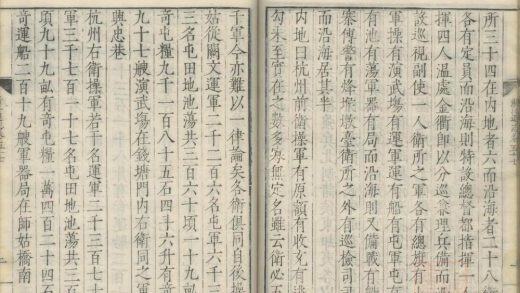 所三十四在内地者六而沿海者二十八衛
各有定員而沿海則特設總督都指揮一人
揮四人温處金衢即以分巡兼理兵備而
設巡視副使一人衛所之軍各有總旗有
軍操有演武塲有運軍運有船有屯軍屯
有池有蕩軍器有局而沿海則又備戰有
寨傳警有烽堠墩臺衛所之外有巡檢司
而沿海居其半
内地曰杭州前衛操軍有原額有收充有逃
勾未至實在之數多寡無定名雖云衛必五
千軍今亦難以一律論矣各衛俱同自後操
姑從闕文運軍二千二百六名屯軍六千三
三名屯田地池蕩共三百六十頃一十九畝
奇屯糧九千一百八十五石四斗六升有奇
九十七艘演武塲在錢塘門内右衛同之軍
與忠巷
杭州右衛操軍若干名運軍二千三百七十
軍三千七百一十七名屯田地池蕩共三百
頃九十九畝有奇屯糧一萬四百二十四石
奇運船二百一十九艘軍器局在師姑橋南